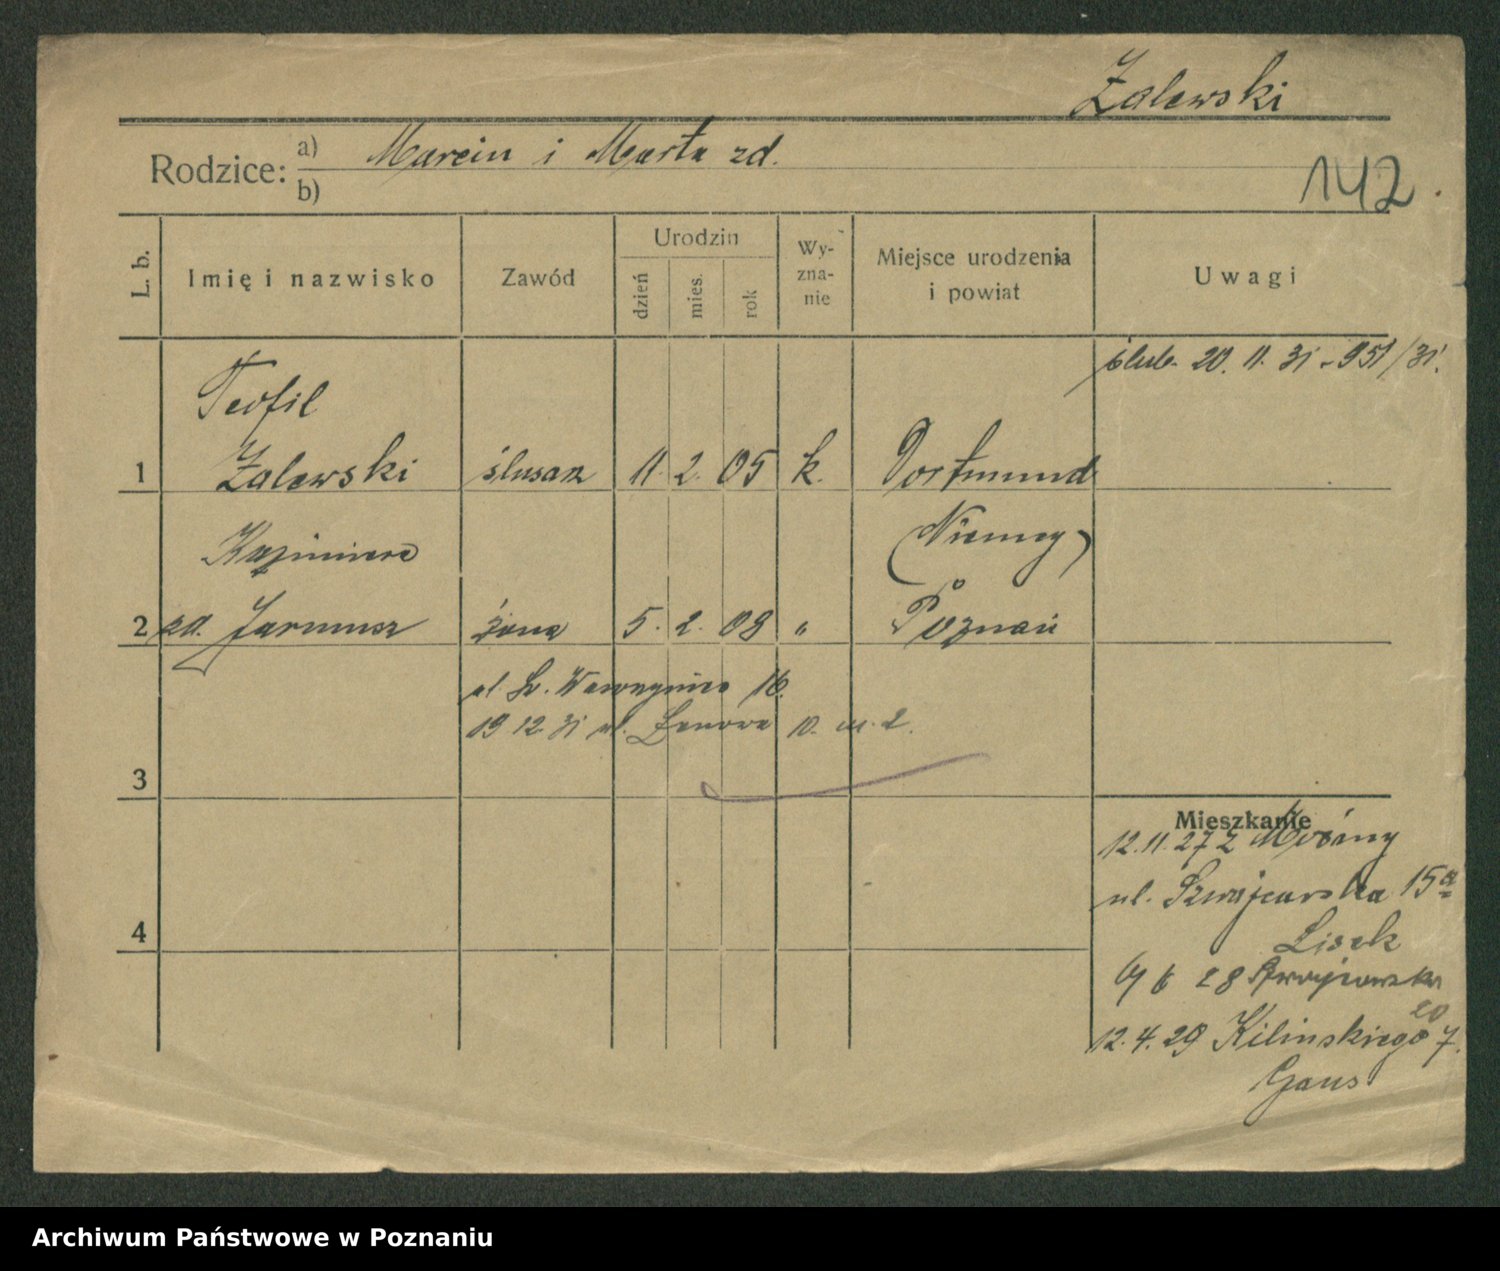 Zalewski
Rodzice: a) Marcin i Marta zd.
b)
142
L. b. Imię i nazwisko Zawód Urodzin dzień mies. rok Wy-zna-nie Miejsce urodzenia i powiat Uwagi
ślub. 20. 11. 31 - 951/31.
Teofil
1 Zalewski ślusarz 11. 2. 05 k. Dortmund
Kazimiera (Niemcy)
2 zd. Jarmusz żona 5. 2. 08 " Poznań
ul. Św. Wawrzyńca 16.
19 12 31 ul. Łanowa 10. m. 2.
3
Mieszkanie
12.11.27 z Mosiny
ul. Szwajcarska 15a
4
Lisek
6 28 Szwajcarska
20
12.4.29 Kilinskiego 7.
Gaus
Archiwum Państwowe w Poznaniu